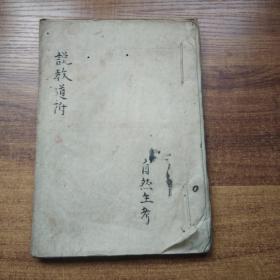 説教道附
自然生考